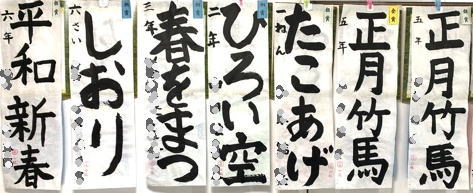 正月竹馬
五年
正月竹馬
五年
たこあげ
一ねん
ひろい空
二年
春をまつ
三年
しおり
六さい
平和新春
六年